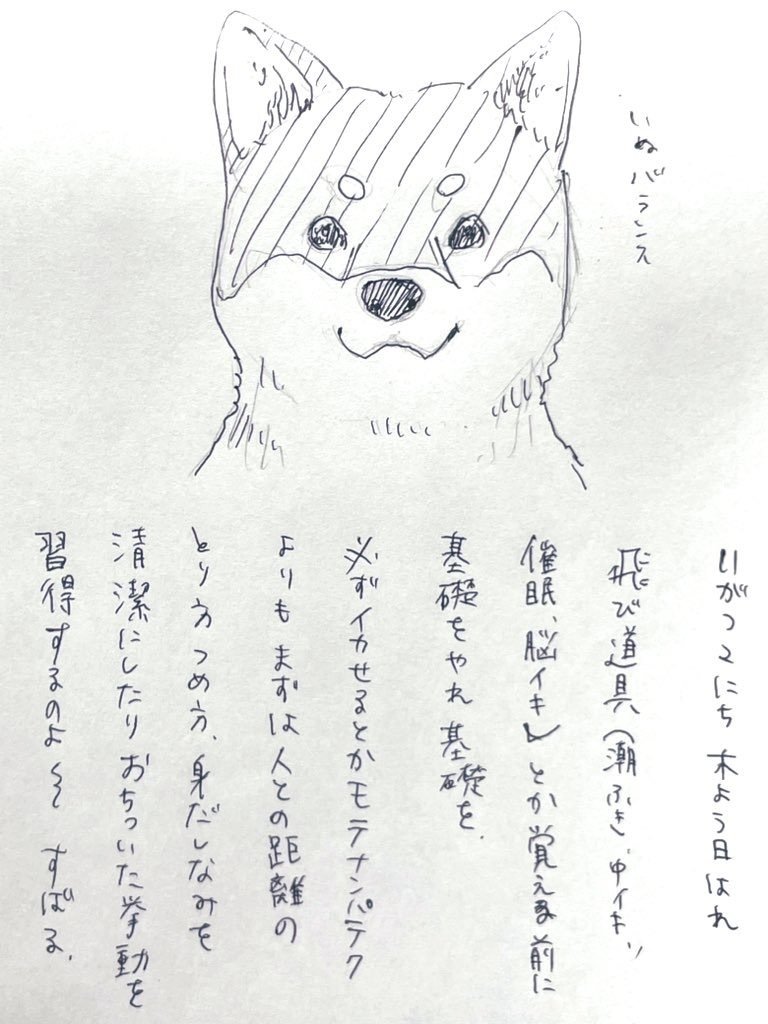 いぬバランス
1がつ2にち 木よう日 はれ
飛び道具(潮ふき、中イキ、
催眠、脳イキ)とか覚える前に
基礎をやれ 基礎を。
必ずイカせるとかモテナンパテク
よりもまずは人との距離の
とり方つめ方、身だしなみを
清潔にしたりおちついた挙動を
習得するのよ〜〜 すばる。